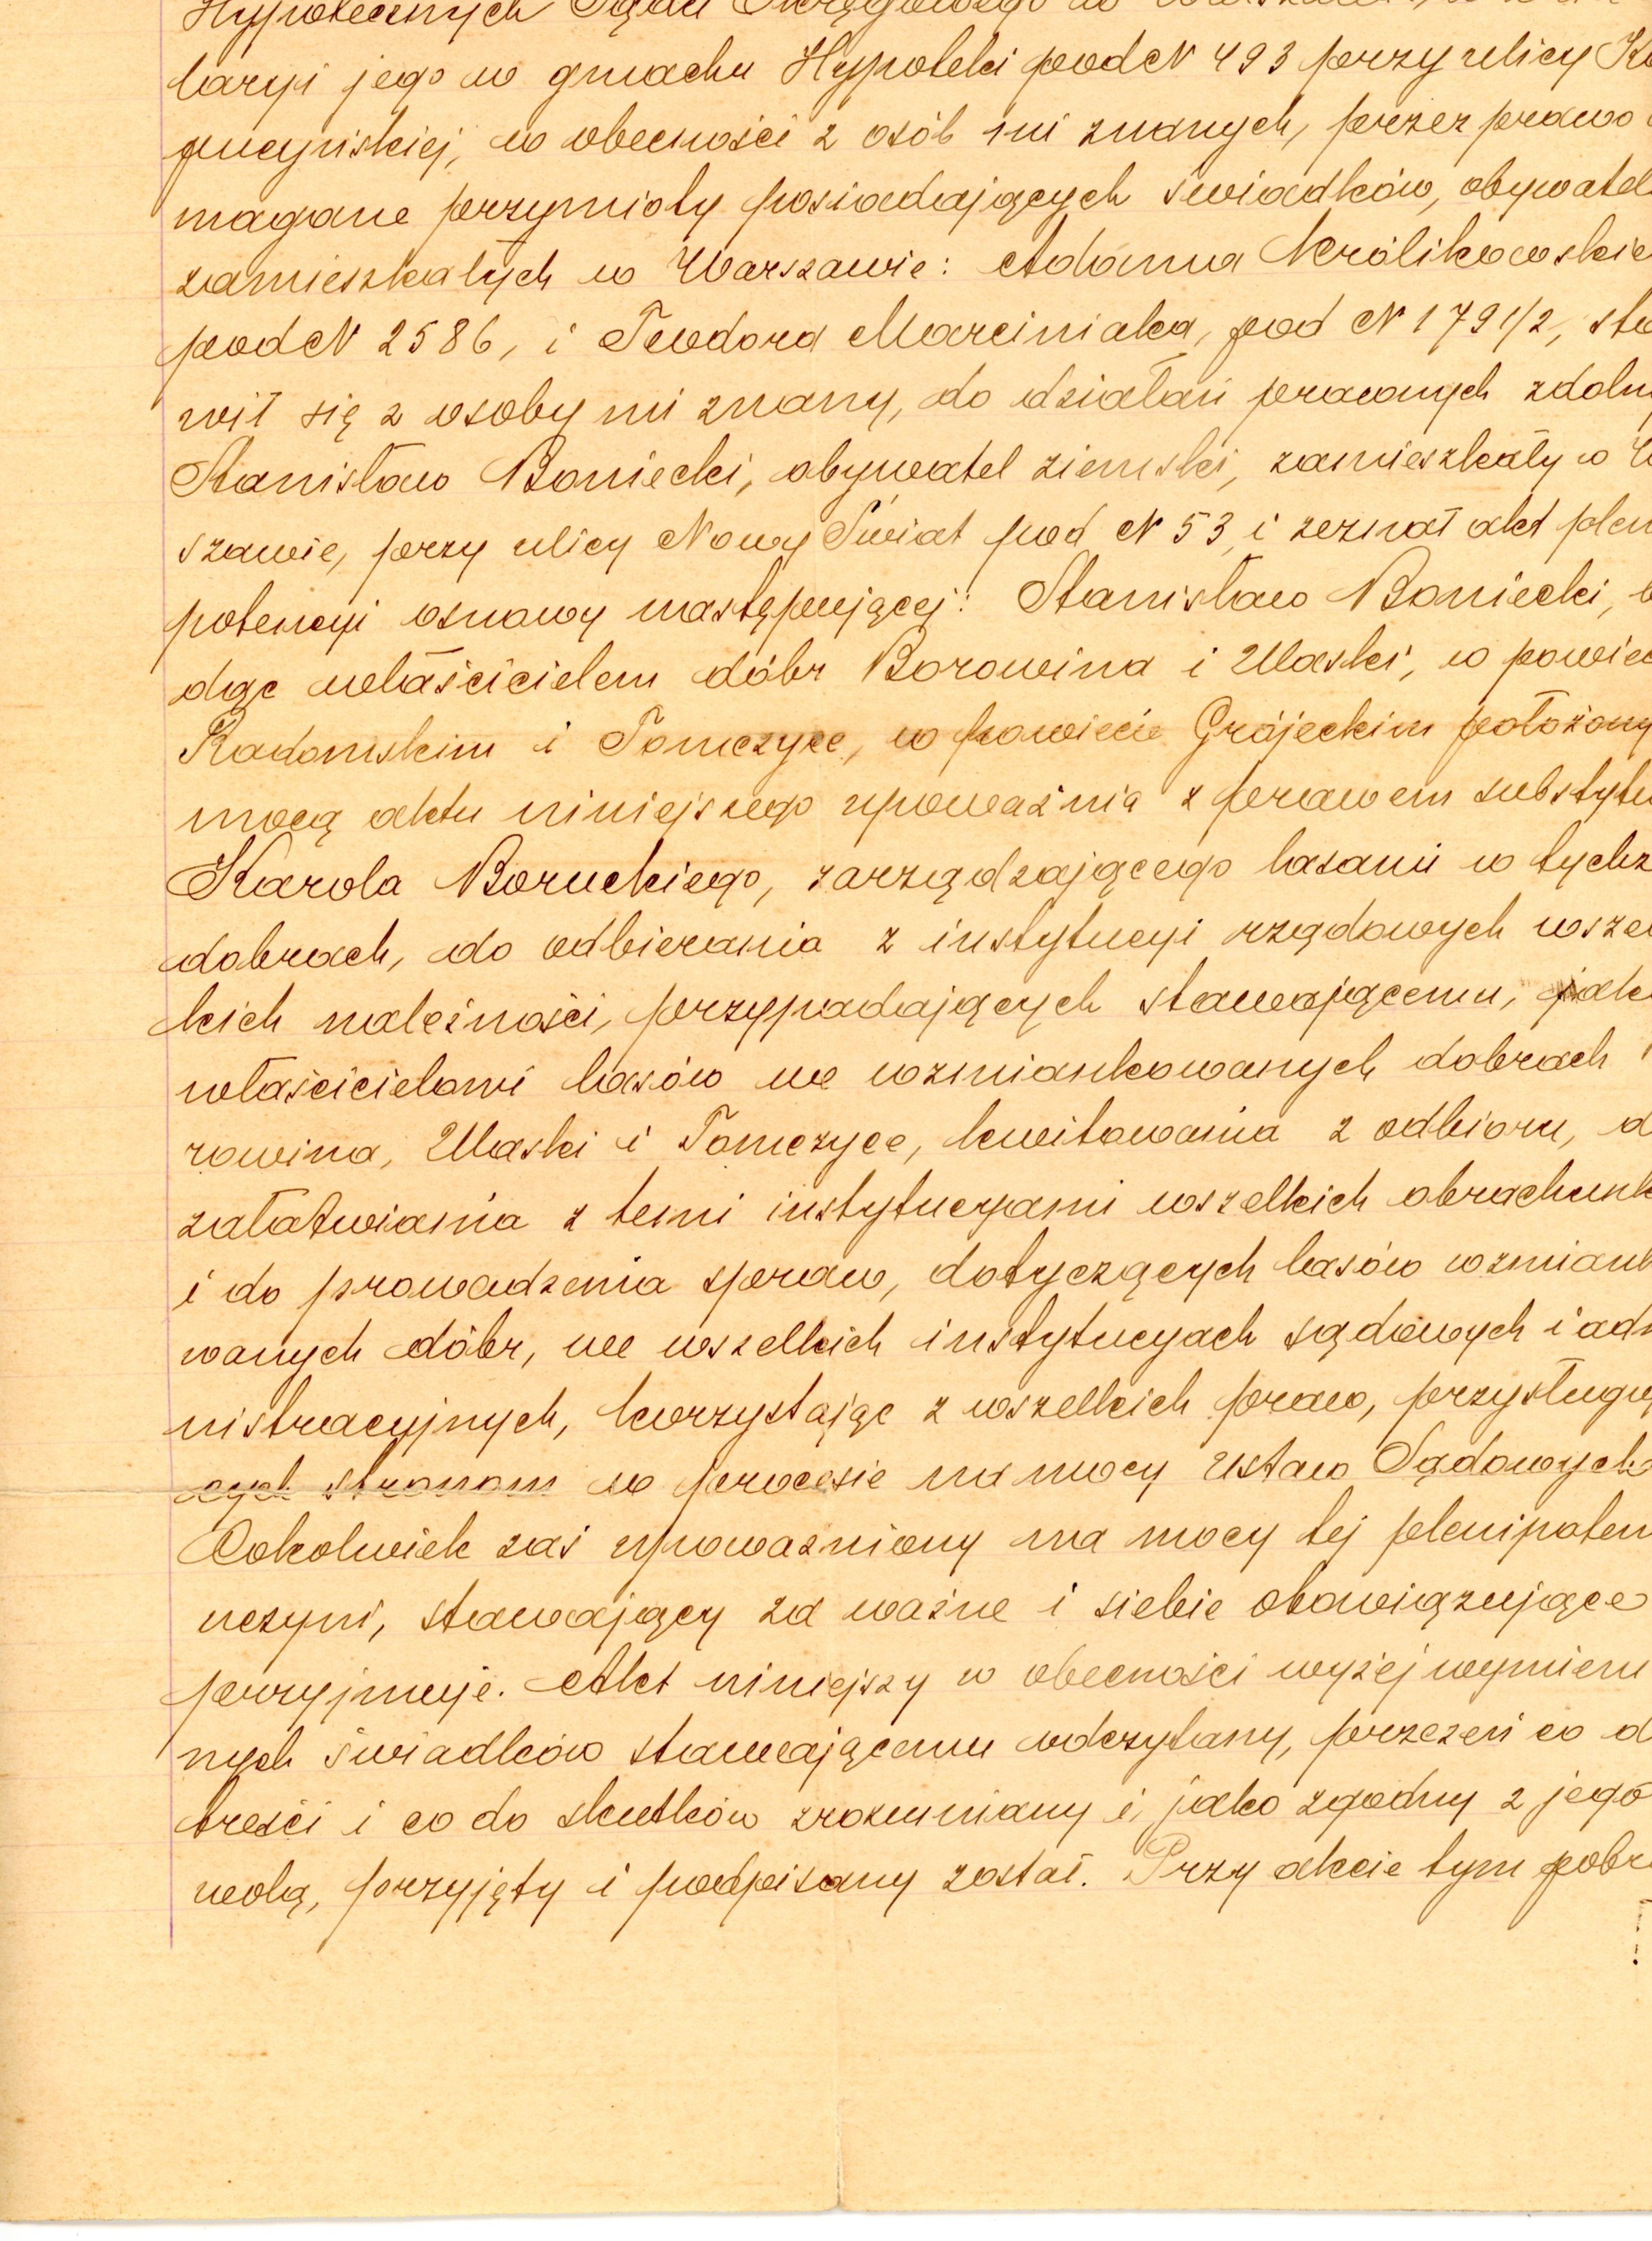 Hypotecznych Sądu Okręgowego w
laryi jego w gmachu Hypoteki pod N 493 przy ulicy Ka
pucyńskiej, w obecności z osób mi znanych, przez prawo
magane przymioty posiadających świadków, obywatel
zamieszkałych w Warszawie: Adama Królikowskie
pod N 2586, i Teodora Marciniaka, pod N 1791/2, sta
wił się z osoby mi znany, do działań prawnych zdoln
Stanisław Boniecki, obywatel ziemski, zamieszkały w W
szawie, przy ulicy Nowy Świat pod N 53, i zeznał akt plen
potencyi osnowy następującej: Stanisław Boniecki, b
dąc właścicielem dóbr Borowina i Ulaski, w powiec
Radomskim i Tomczyce, w powiecie Grójeckim położony
mocą aktu niniejszego upoważnia z prawem substytu
Karola Boruckiego, zarządzającego lasami w tychż
dobrach, do odbierania z instytucyi rządowych wszel
kich należności, przypadających stawającemu, jak
właścicielowi lasów we wzmiankowanych dobrach
rowina, Ulaski i Tomczyce, kwitowania z odbioru, d
załatwiania z temi instytucyami wszelkich obrachunk
i do prowadzenia spraw, dotyczących lasów wzmiank
wanych dóbr, we wszelkich instytucyach sądowych i adm
nistracyjnych, korzystając z wszelkich praw, przysługuj
cych stronom w procesie na mocy Ustaw Sądowych
Cokolwiek zaś upoważniony na mocy tej plenipoten
uczyni, stawający za ważne i siebie obowiązujące
przyjmuje. Akt niniejszy w obecności wyżej wymieni
nych świadków stawającemu odczytany, przezeń co d
treści i co do skutków zrozumiany i, jako zgodny z jego
wolą, przyjęty i podpisany został. Przy akcie tym pobr